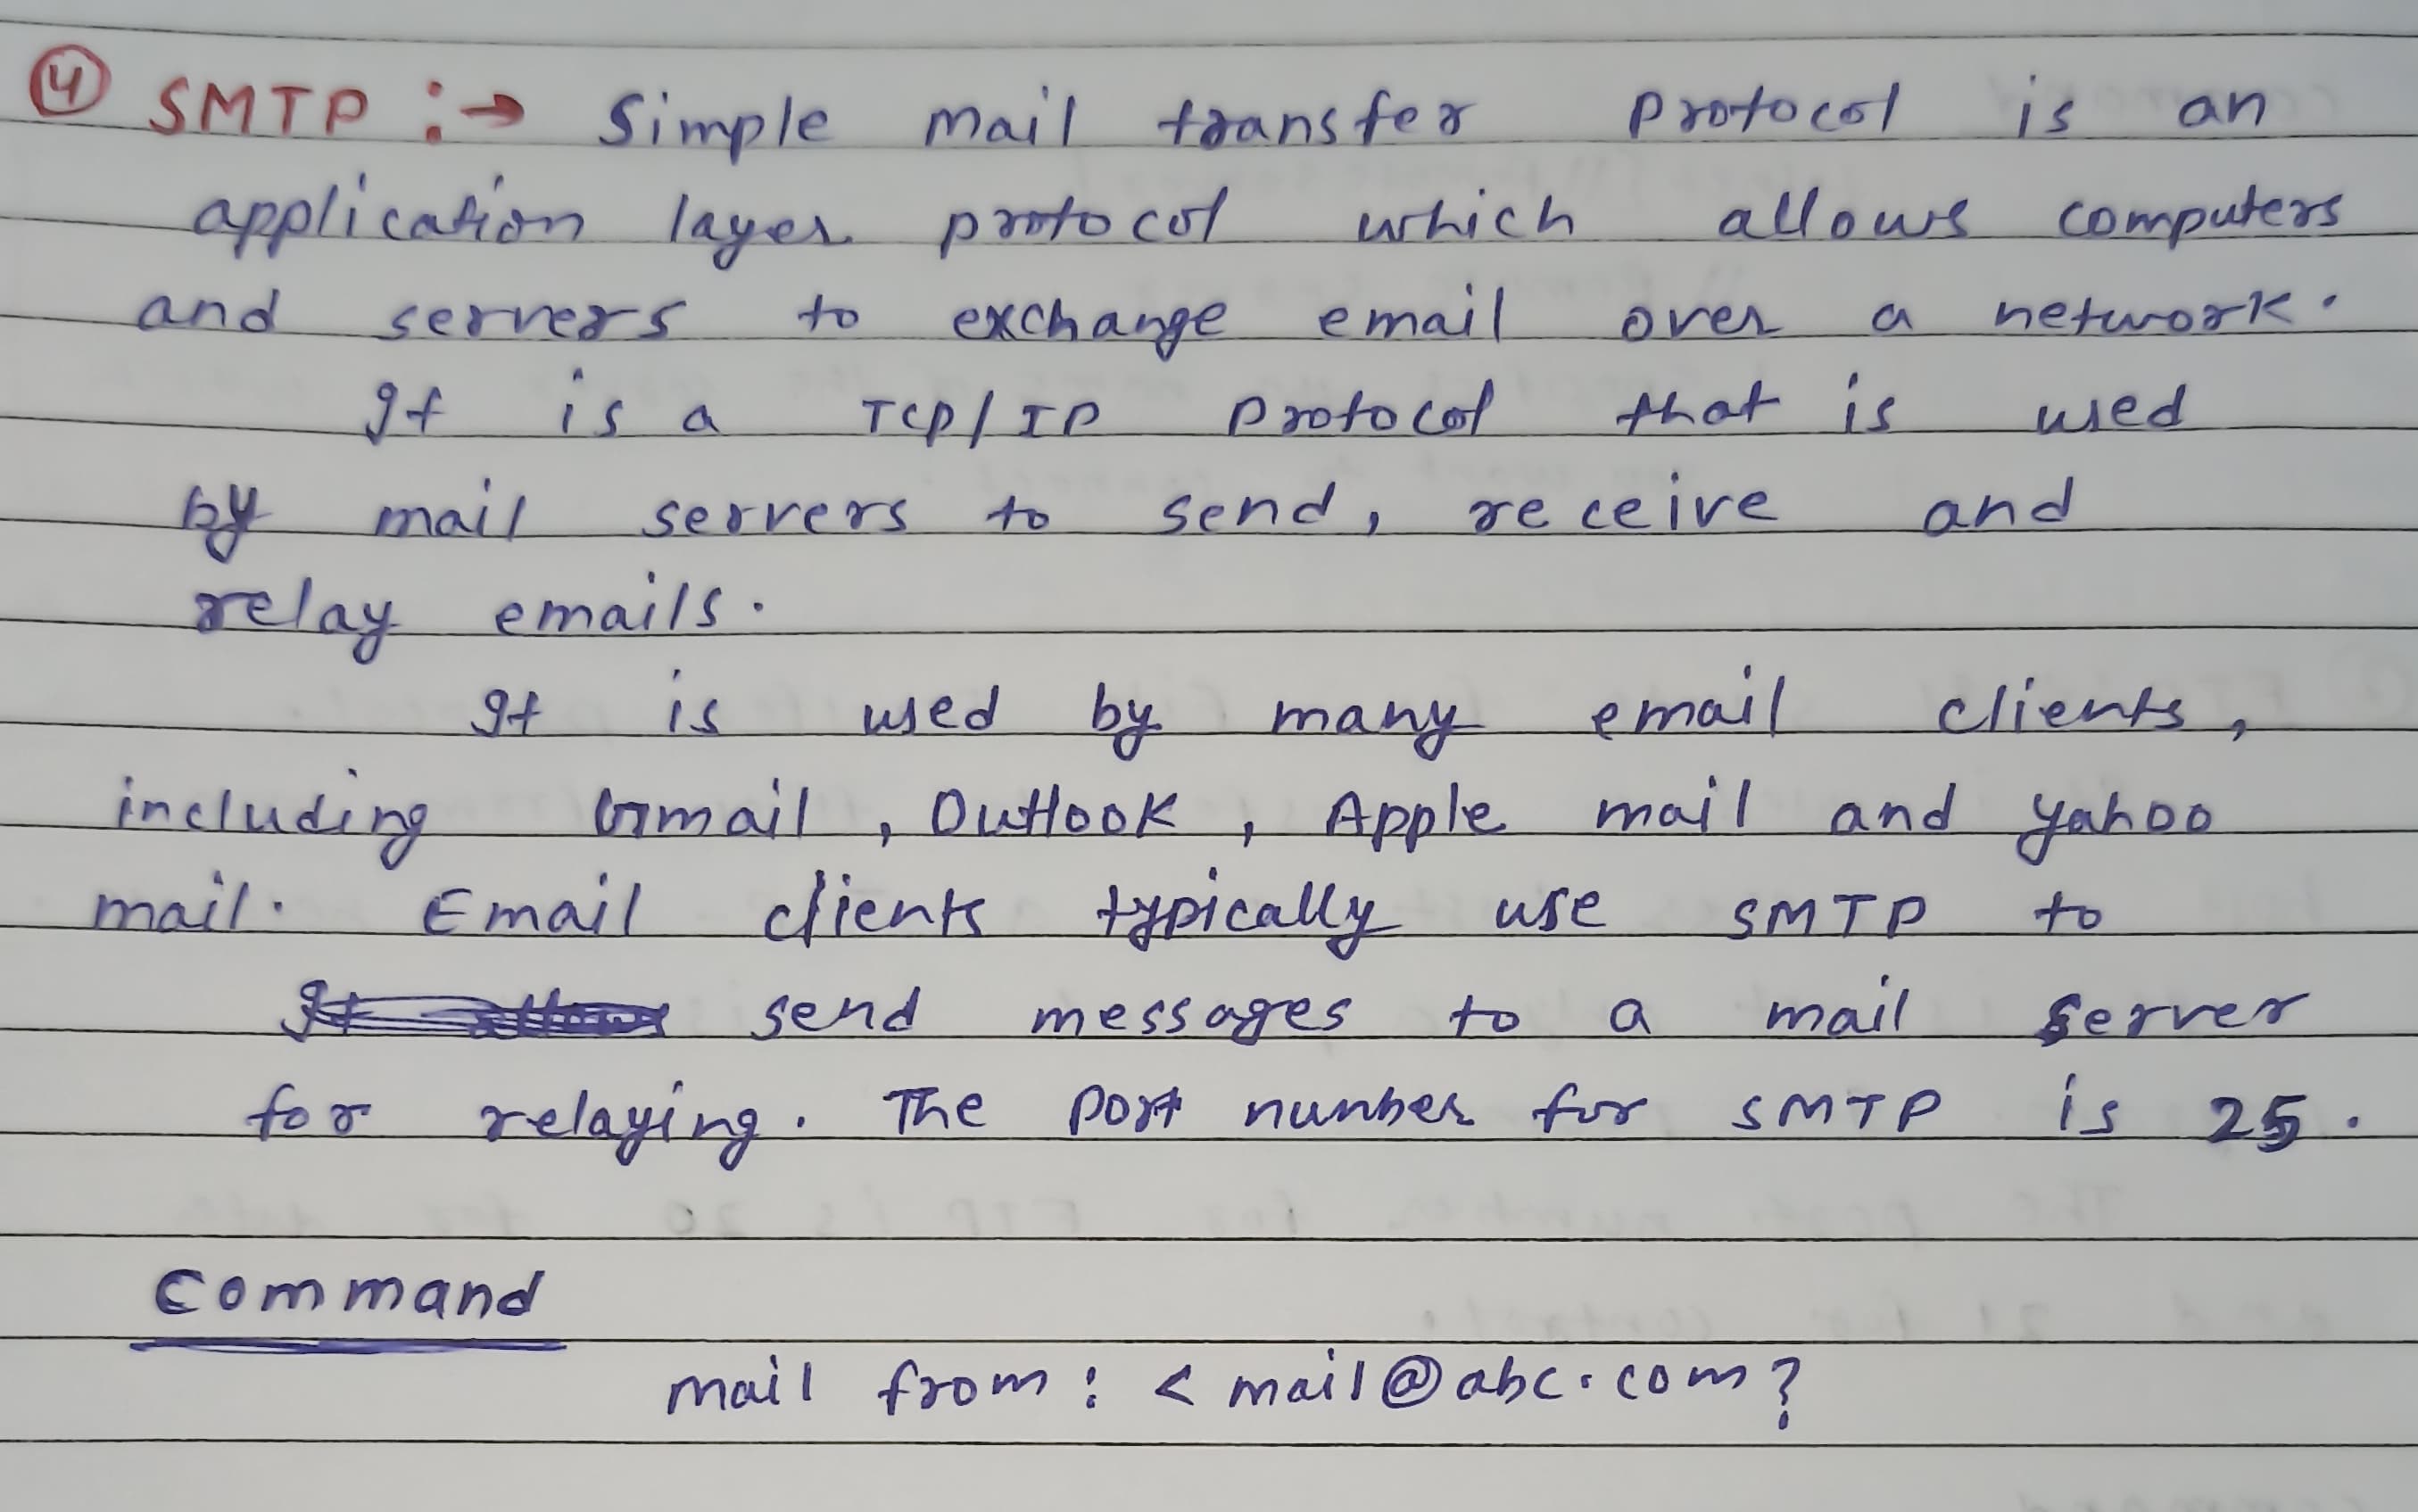 ④ SMTP :→ Simple mail transfer protocol is an
application layer protocol which allows computers
and servers to exchange email over a network.
It is a TCP/IP protocol that is used
by mail servers to send, receive and
relay emails.
It is used by many email clients,
including Gmail, Outlook, Apple mail and yahoo
mail. Email clients typically use SMTP to
send messages to a mail server
for relaying. The port number for SMTP is 25.
Command
mail from: < mail@abc.com?